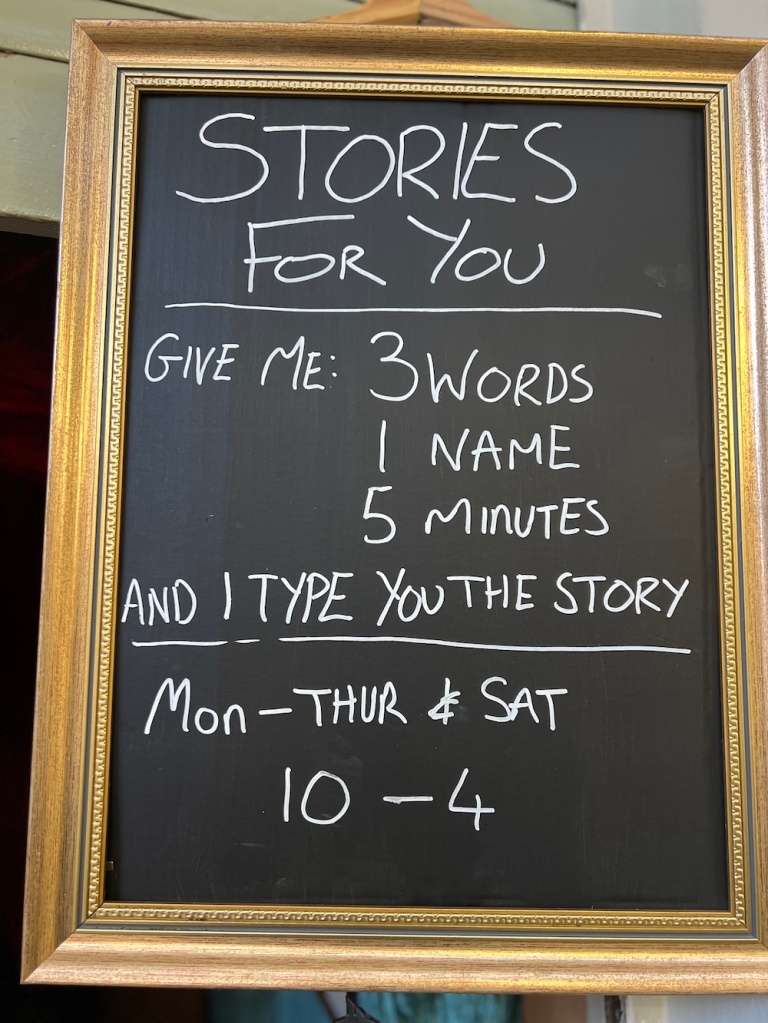 STORIES
FOR YOU
GIVE ME: 3 WORDS
1 NAME
5 MINUTES
AND I TYPE YOU THE STORY
Mon - THUR & SAT
10 - 4